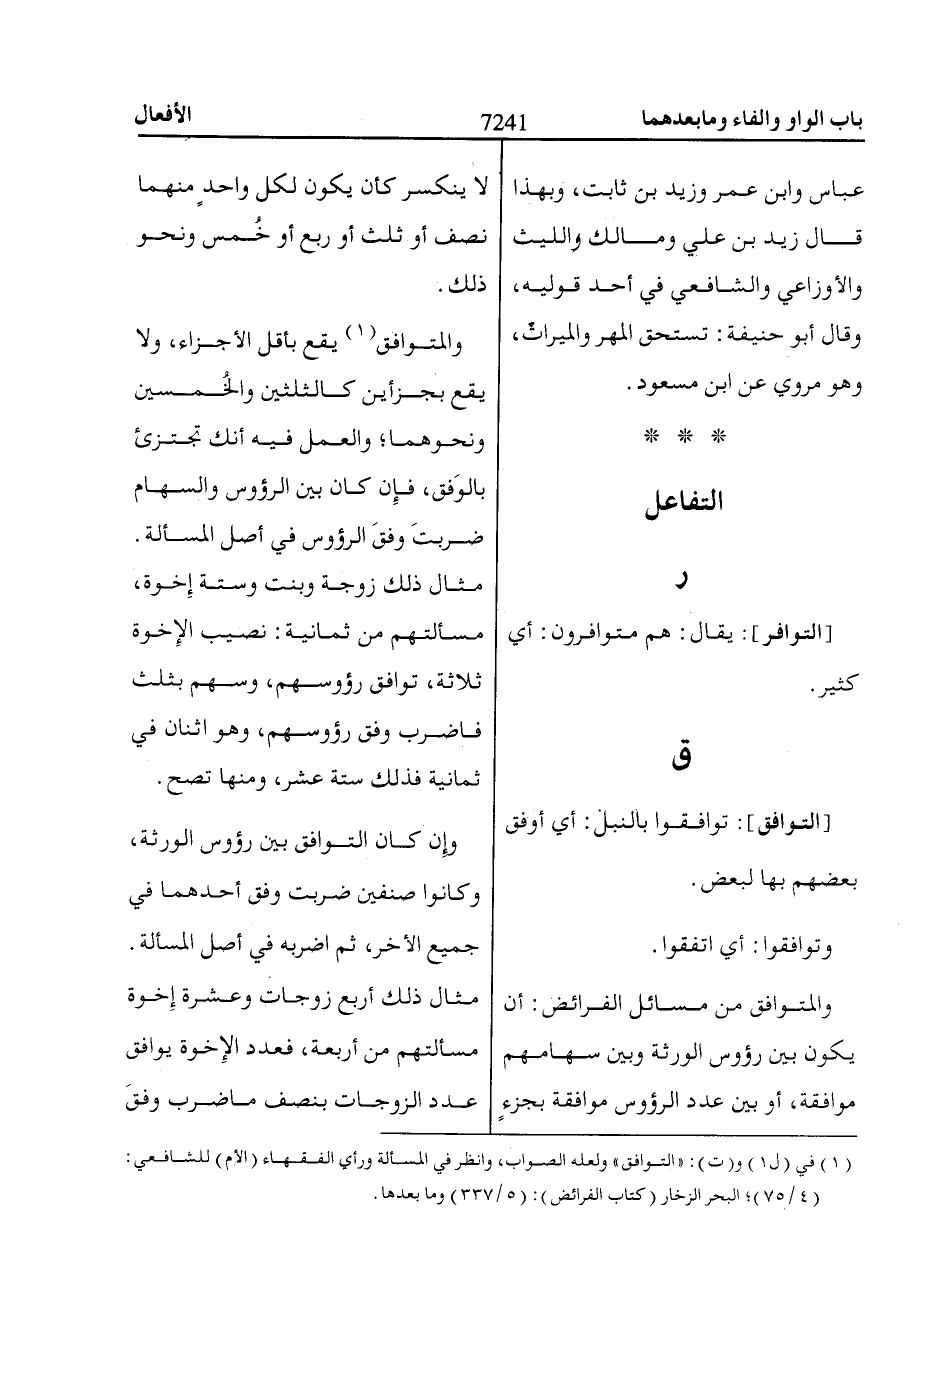 باب الواو والفاء ومابعدهما
7241
الأفعال
عباس وابن عمر وزيد بن ثابت، وبهذا
قال زيد بن علي ومالك والليث
والأوزاعي والشافعي في أحد قوليه،
وقال أبو حنيفة: تستحق المهر والميراث،
وهو مروي عن ابن مسعود.
* * *
التفاعل
ر
[التوافر]: يقال: هم متوافرون: أي
كثير.
ق
[التوافق]: توافقوا بالنبل: أي أوفق
بعضهم بها لبعض.
وتوافقوا: أي اتفقوا.
والمتوافق من مسائل الفرائض: أن
يكون بين رؤوس الورثة وبين سهامهم
موافقة، أو بين عدد الرؤوس موافقة بجزءٍ
لا ينكسر كأن يكون لكل واحدٍ منهما
نصف أو ثلث أو ربع أو خُمس ونحو
ذلك.
والمتوافق(١) يقع بأقل الأجزاء، ولا
يقع بجزأين كالثلثين والخُمسين
ونحوهما؛ والعمل فيه أنك تجتزئ
بالوَفق، فإن كان بين الرؤوس والسهام
ضربتَ وفقَ الرؤوس في أصل المسألة.
مثال ذلك زوجة وبنت وستة إخوة،
مسألتهم من ثمانية: نصيب الإخوة
ثلاثة، توافق رؤوسهم، وسهم بثلث
فاضرب وفق رؤوسهم، وهو اثنان في
ثمانية فذلك ستة عشر، ومنها تصح.
وإن كان التوافق بين رؤوس الورثة،
وكانوا صنفين ضربت وفق أحدهما في
جميع الآخر، ثم اضربه في أصل المسألة.
مثال ذلك أربع زوجات وعشرة إخوة
مسألتهم من أربعة، فعدد الإخوة يوافق
عدد الزوجات بنصف ماضرب وفقَ
(١) في (ل١) و(ت): «التوافق» ولعله الصواب، وانظر في المسألة ورأي الفقهاء (الأم) للشافعي:
(٤/ ٧٥)؛ البحر الزخار (كتاب الفرائض): (٥/ ٣٣٧) وما بعدها.